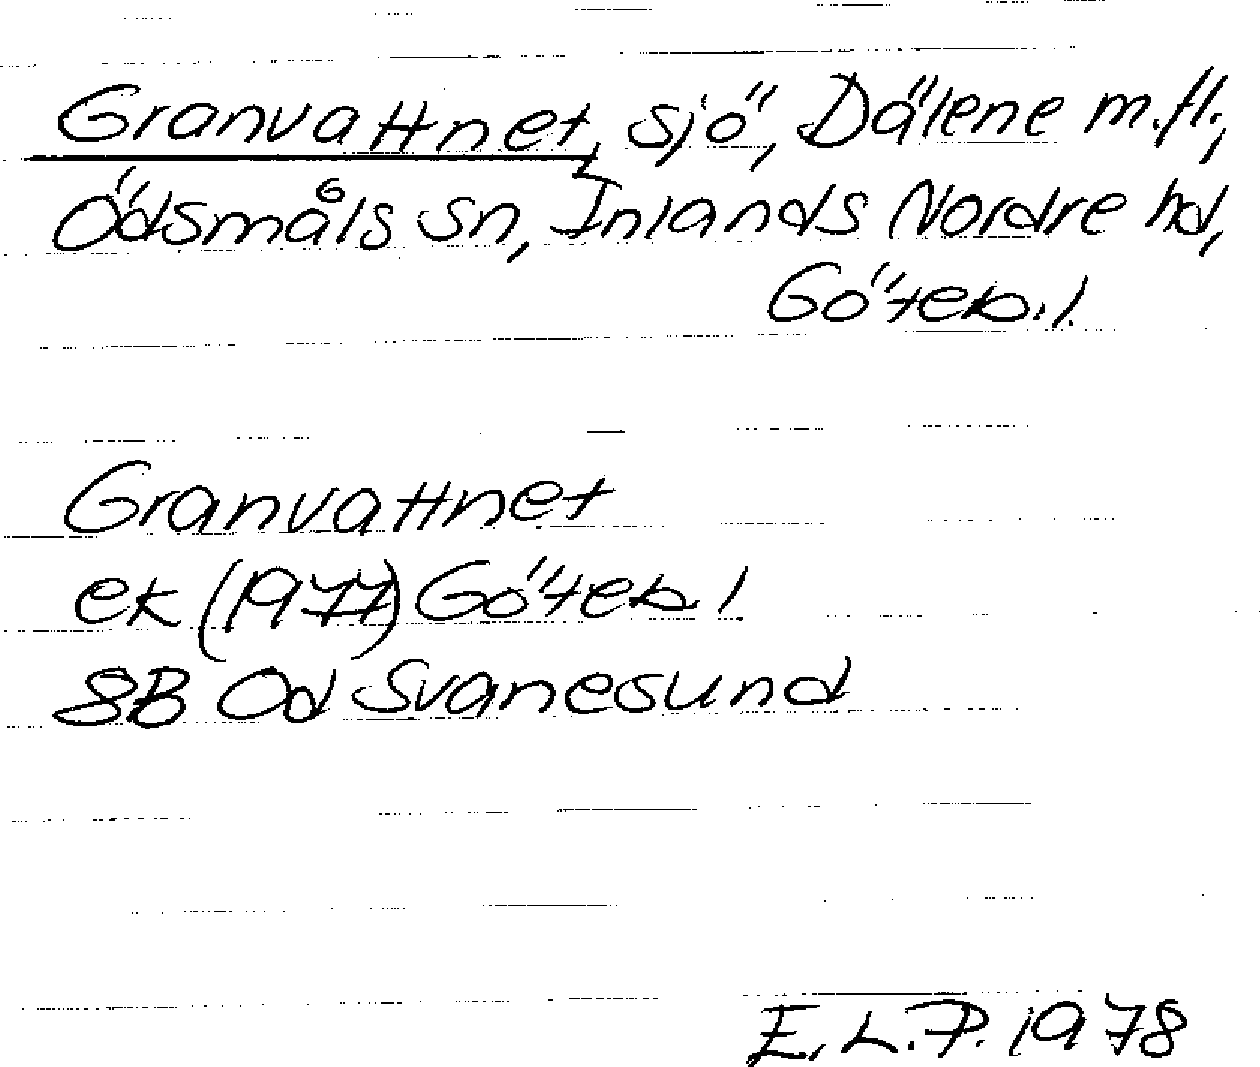 Granvattnet, sjö, Dälene m.fl.,
Ödsmåls sn, Inlands Nordre hd,
Göteb.l.
Granvattnet
ek (1977) Göteb.l.
8B Od Svanesund
E.L.P. 1978